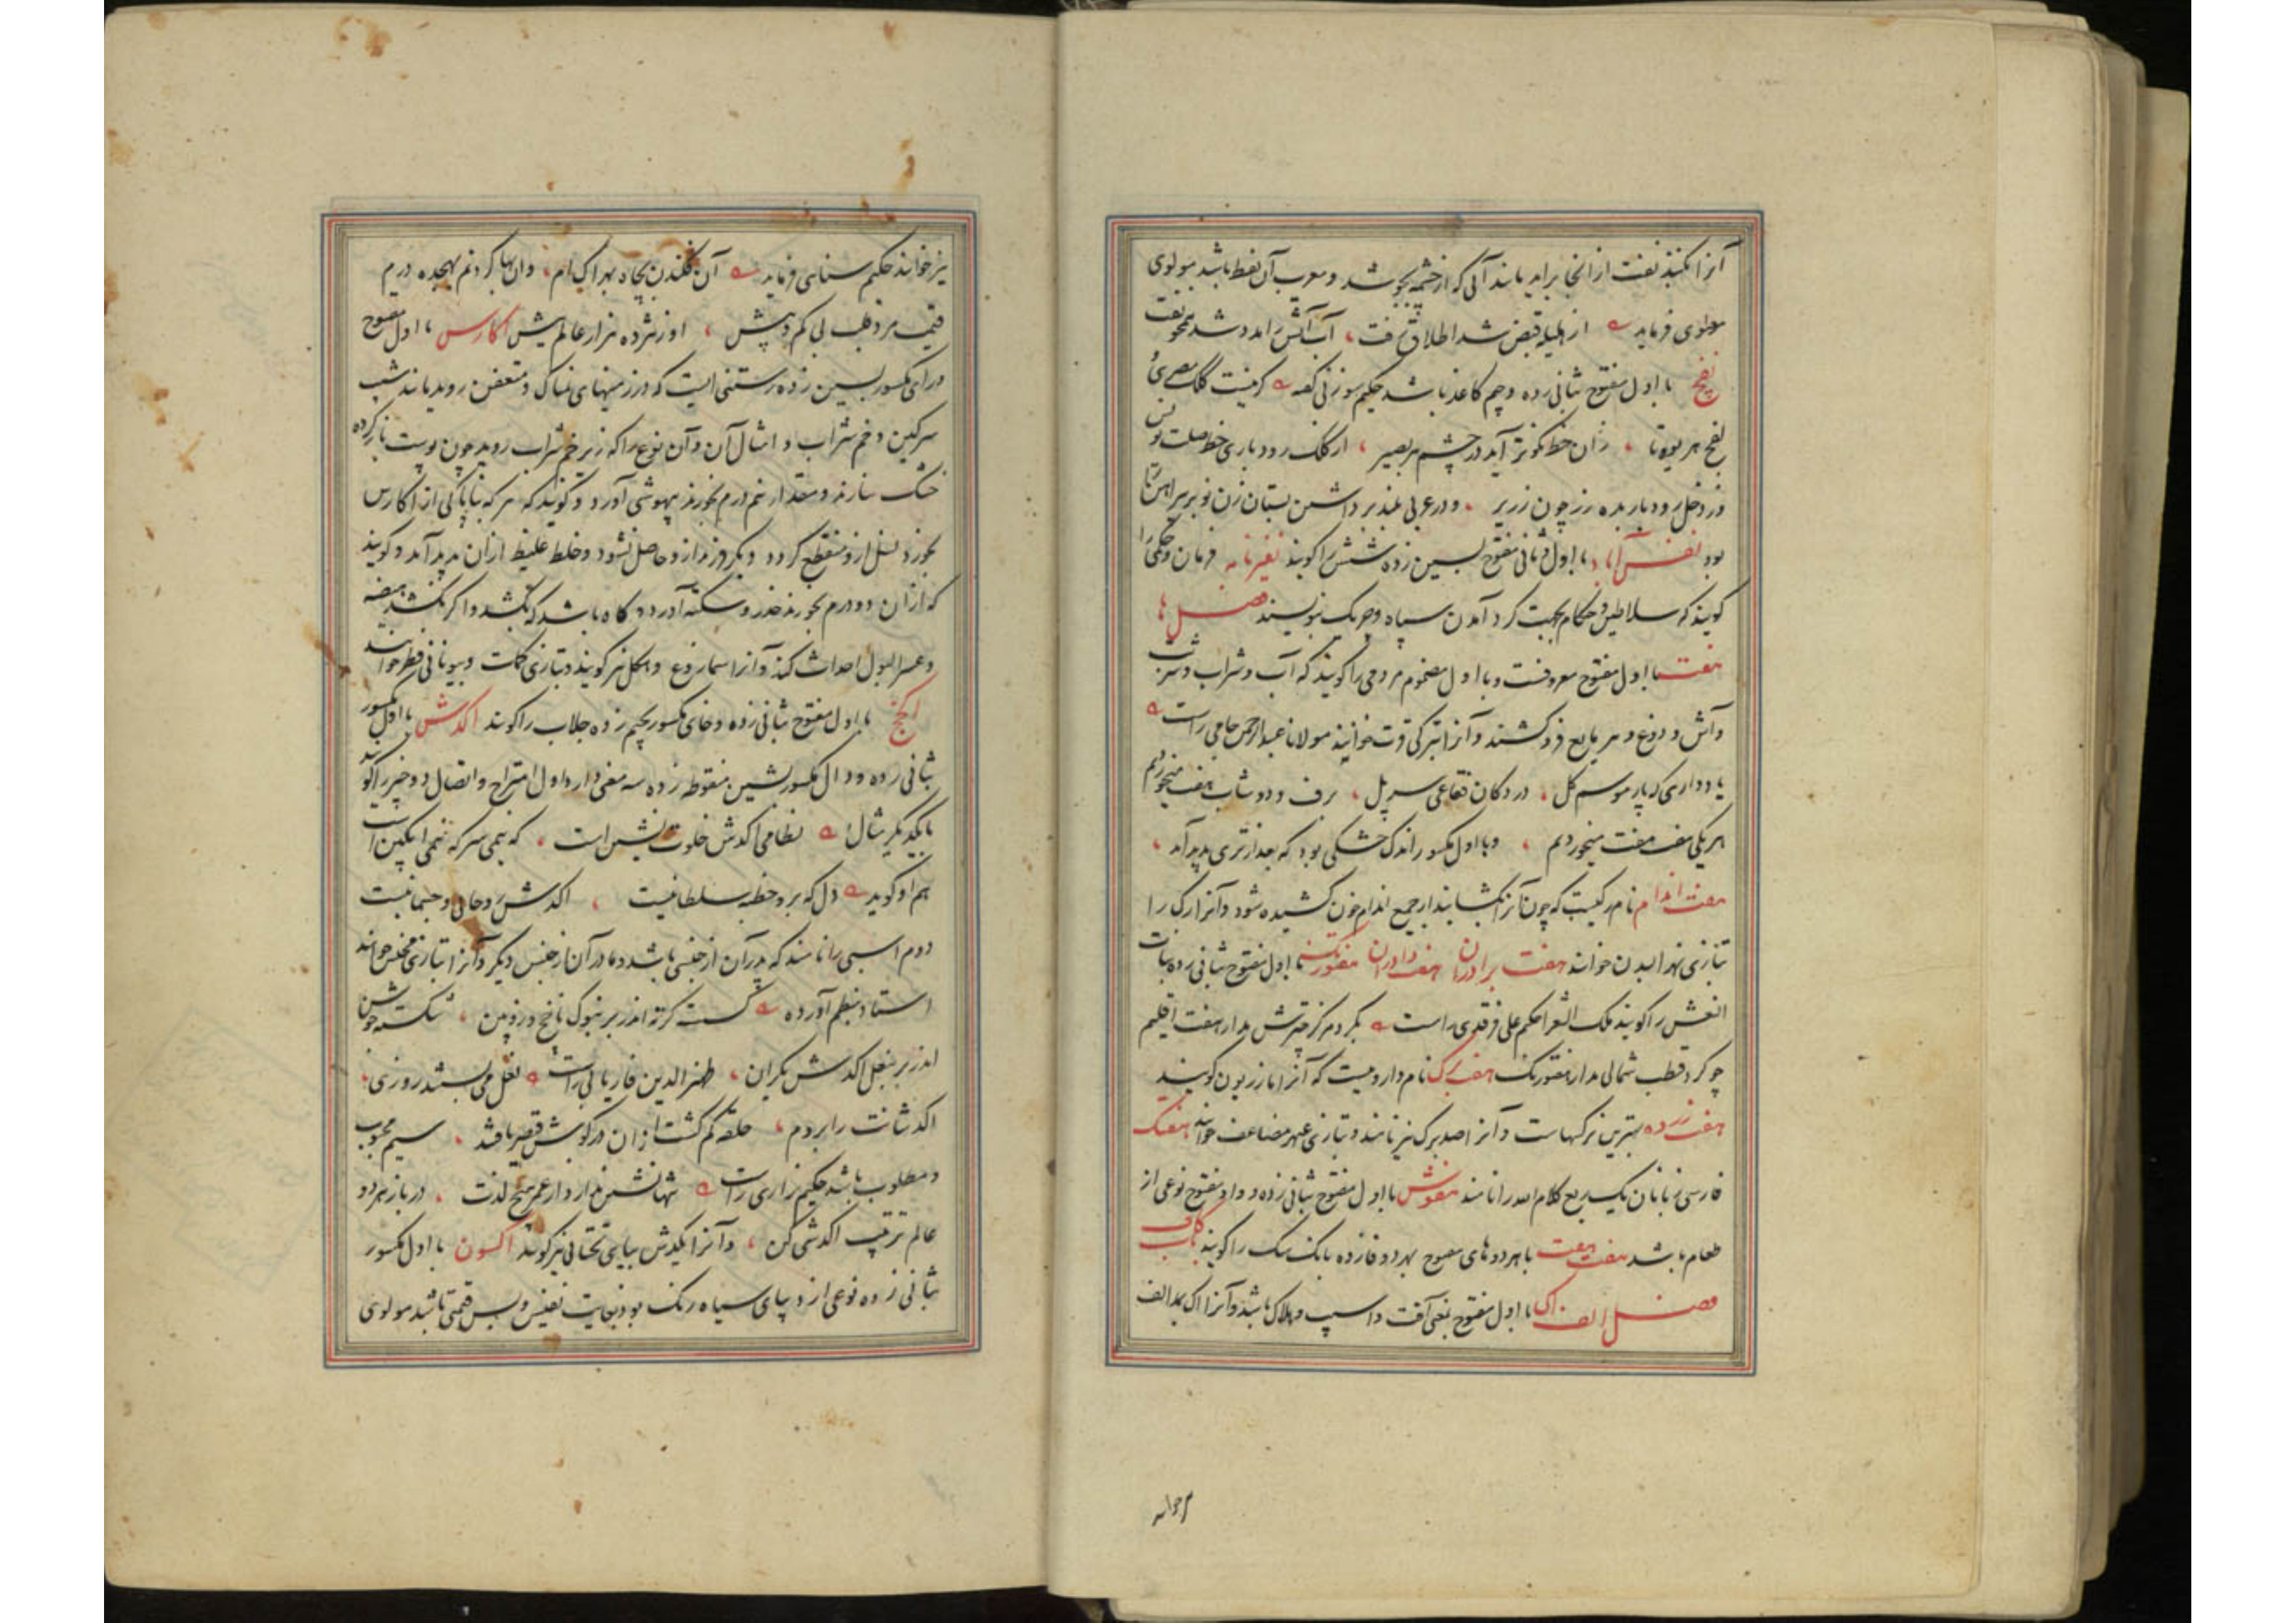 آنرا بکنند نفت از آنجا براید مانند آبی که از چشمه بجوشد و معرب آن نفط باشد مولوی
معنوی فرماید از هلیله قبض شد اطلاق رفت، آب آتش را مدد شد همچو نفت
نفج با اول مفتوح بثانی زده و جیم کاغذ باشد حکیم سوزنی گفته
نفج هر بوته تا، زان خط نکوتر آید در چشم هر بصیر، از کلک رودباری خط
در دخل رودبار بده زر چون زریر، و در عربی بلند برداشتن پستان زن نو بر پیراهن را
بود با اول و ثانی مفتوح بسین زده شش را گویند نفیرنامه فرمان و حکمی را
گویند که سلاطین و حکام بجهت گرد آمدن سپاه و چریک نویسند فصل ها
هفت با اول مفتوح معروفست و با اول مضموم مردمی را گویند که آب و شراب و شربت
و آش و دوغ و هر مایع فرو کشند و آنرا بترکی قرت خوانند مولانا عبدالرحمن جامی راست
یاد داری که پار موسم گل، در دکان فقاعی سر پل، برف و دوشاب هفت میخوردیم
هر یکی هفت هفت میخوردیم، و با اول مکسور اندک خشکی بود که بعد از تری پدید آمد،
هفت اندام نام رگیست که چون آنرا بکشایند از جمیع اندام خون کشیده شود و آنرا رگ را
بتازی نهر البدن خوانند هفت برادران هفت دادران هفتورنگ با اول مفتوح بثانی زده بنات
النعش را گویند ملک الشعرا حکیم علی فرقدی راست بگرد مرکز چترش مدار هفت اقلیم
چو گرد قطب شمالی مدار هفتورنگ هفت برگ نام داروییست که آنرا مازریون گویند
هفت زرده بهترین نرگسهاست و آنرا صد برگ نیز نامند و بتازی عبهر مضاعف خوانند هفتک
فارسی زبانان یک سبع کلام الله را نامند هفوش با اول مفتوح بثانی زده و واو مفتوح نوعی از
طعام باشد هفت هفت با هر دو های مفتوح بهر دو فا زده بانک سک را گویند باب کاف
فصل الف اک با اول مفتوح بمعنی آفت و آسیب و هلاک باشد و آنرا اک بمد الف
نیز خوانند حکیم سنایی فرماید آن فکندن بچاه بهر اک ام، وان بها کردنم بهجده درم
قیمت مرد قلب بی کم و بیش، او نیرزده هزار عالم بیش اکارس با اول مفتوح
و رای مکسور بسین زده رستنی ایست که در زمینهای نمناک و متعفن روید مانند شیب
سرکین و خم شراب و امثال آن و آن نوع را که زیر خم شراب روید چون پوست باز کرده
خشک سازند و مقدار نیم درم بخورند بیهوشی آورد و گویند که هر که بناپاکی از اکارس
بخورد نسل از و منقطع گردد و دیگر فرزند از و حاصل نشود و خلط غلیظ از آن پدید آمد و گویند
که از آن دو درم بخورند خدر و سکته آورد و گاه باشد که بکشد و اگر نکشد هیضه
و عسر البول احداث کند و آنرا سماروغ و هکل نیز گویند و بتازی کمات و بیونانی فطر خوانند
اکخج با اول مفتوح بثانی زده و خای مکسور بجیم زده جلاب را گویند اکدش با اول مکسور
بثانی زده و دال مکسور بشین منقوطه زده سه معنی دارد اول امتزاج و اتصال دو چیز را گویند
با یکدیگر مثال نظامی اکدش خلوت نشین است، که نیمی سرکه نیمی انگبین است
هم او گوید دل که برو خطبه سلطانیست، اکدش روحانی و جسمانیست
دوم اسبی را نامند که پدر آن از جنسی باشد و مادر آن از جنس دیگر و آنرا بتازی مجنس خوانند
استاد بنظم آورده کست کرته اندر بر بنوک ناخج و زوبین، شکسته جوشن
اندر بر بنعل اکدش یکران، ظهیر الدین فاریابی راست نعل می بستند روزی،
اکدشانت را بروم، حلقه کم گشت از آن در گوش قیصر یافتند، سیم محبوب
و مطلوب باشد حکیم نزاری راست تنها نشین ندارد از عمر هیچ لذت، در باز هر دو
عالم ترتیب اکدشی کن، و آنرا یکدش بیای تحتانی نیز گویند اکسون با اول مکسور
بثانی زده نوعی از دیبای سیاه رنگ بود بغایت نفیس و بس قیمتی باشد مولوی